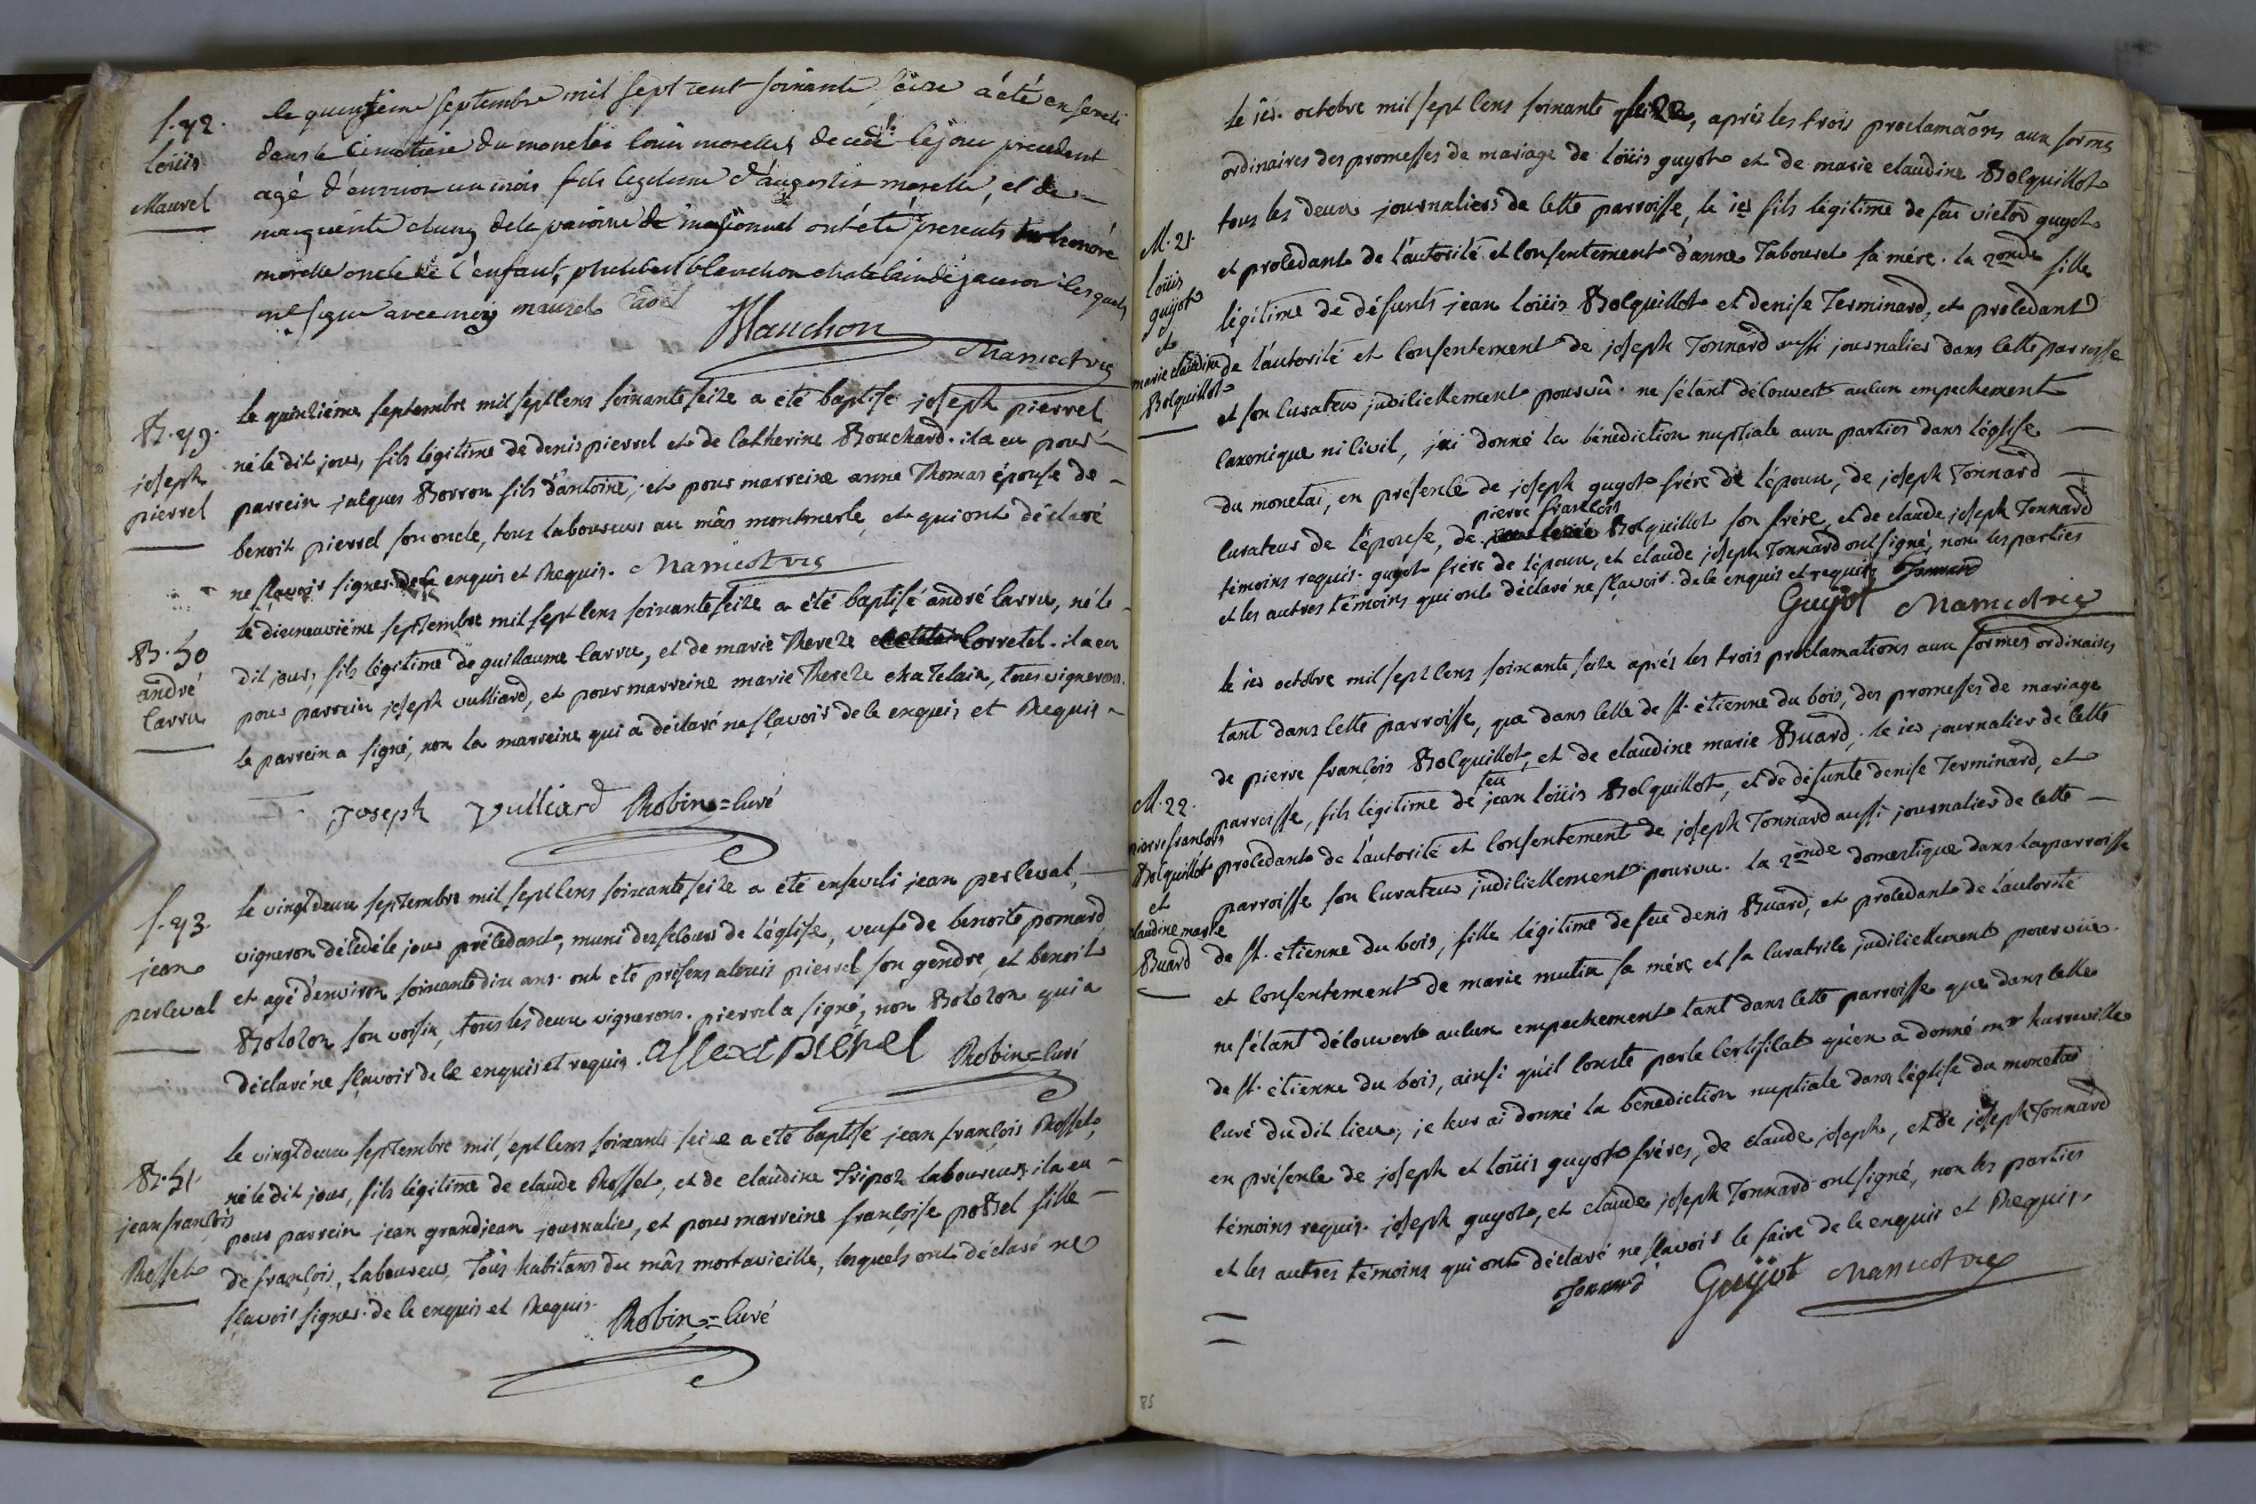 S. 42.
loüis
Maurel
le quinzieme septembre mil sept cent soixante seize a été enseveli
dans le cimetiere du monetai louis morelle decedé le jour precedent
agé d'environ un mois fils legitime d'augustin morelle, et de
marguerite de la paroisse de ont été presents honoré
morelle oncle de l'enfant, philibert blanchon chatelain de jasseron lesquels
signé avec moy
Blanchon
Mamet vic
B. 49.
joseph
pierrel
le quinziéme septembre mil sept cens soixante seize a été baptisé joseph pierrel,
né le dit jour, fils légitime de denis pierrel et de catherine Bouchard. il a eu pour
parrein jacques Borron fils d'antoine, et pour marreine anne Thomas épouse de
benoit pierrel son oncle, tous laboureurs au mâs montmerle, et qui ont déclaré
ne sçavoir signer de ce enquis et Requis. Mamet vic
B. 50
andré
Carru
le dixneuviéme septembre mil sept cens soixante seize a été baptisé andré Carru, né le
dit jour, fils légitime de guillaume Carru, et de marie Thereze Corretel. il a eu
pour parrein joseph vulliard, et pour marreine marie Thereze chatelain, tous vignerons.
le parrein a signé, non la marreine qui a déclaré ne sçavoir de ce enquis et Requis
Joseph Vulliard Robin=curé
S. 43.
jean
perceval
le vingt deux septembre mil sept cens soixante seize a été enseveli jean perceval,
vigneron décédé le jour précédant, muni des secours de l'église, veuf de benoite pomard
et agé d'environ soixante dix ans. ont été présens alexis pierrel son gendre, et benoit
Bolozon son voisin, tous les deux vignerons. pierrel a signé, non Bolozon qui a
déclaré ne sçavoir de ce enquis et requis. Robin=curé
B. 51.
jean françois
Rosset
le vingt deux septembre mil sept cens soixante seize a été baptisé jean françois Rosset,
né le dit jour, fils légitime de claude Rosset, et de claudine Tripoz laboureurs. il a eu
pour parrein jean grandjean journalier, et pour marreine françoise poBel fille
de françois, laboureur, Tous habitans du mâs mortavieille, lesquels ont déclaré ne
sçavoir signer. de ce enquis et Requis.
Robin=curé
M. 21.
loüis
guyot
et
marie claudine
Bolquillot
le 1er. octobre mil sept cens soixante seize, aprés les trois proclamaõns aux formes
ordinaires des promesses de mariage de loüis guyot et de marie claudine Bolquillot
tous les deux journaliers de cette parroisse, le 1er fils légitime de feu victor guyot
et procédant de l'autorité et consentement d'anne Tabouret sa mére. la 2onde fille
légitime de défunts jean loüis Bolquillot et denise Terminard, et procédant
de l'autorité et consentement de joseph Tonnard aussi journalier dans cette parroisse
et son curateur judiciellement pourvû. ne s'étant découvert aucun empechement
canonique ni civil, j'ai donné la bénédiction nuptiale aux parties dans l'église
du monetai, en présence de joseph guyot frére de l'époux, de joseph Tonnard
pierre françois
curateur de l'épouse, de Bolquillot son frére, et de claude joseph Tonnard
témoins requis. guyot frére de l'époux, et claude joseph Tonnard ont signé, non les parties
et les autres témoins qui ont déclaré ne sçavoir. de ce enquis et requis Tonnard
Guyot Mamet vic
M. 22.
pierre françois
Bolquillot
et
claudine marie
Buard
le 1er octobre mil sept cens soixante seize aprés les trois proclamations aux formes ordinaires
tant dans cette parroisse, que dans celle de st. étienne du bois, des promesses de mariage
de pierre françois Bolquillot, et de claudine marie Buard, le 1er journalier de cette
feu
parroisse, fils légitime de jean loüis Bolquillot, et de défunte denise Terminard, et
procédant de l'autorité et consentement de joseph Tonnard aussi journalier de cette
parroisse son curateur judiciellement pourvu. la 2onde domestique dans la parroisse
de st. étienne du bois, fille légitime de feu denis Buard, et procédant de l'autorité
et consentement de marie mutin sa mére et sa curatrice judiciellement pourvüe.
ne s'étant découvert aucun empechement tant dans cette parroisse que dans celle
de st. étienne du bois, ainsi qu'il conste par le certificat qu'en a donné mr
curé du dit lieu, je leur ai donné la bénédiction nuptiale dans l'église du monetai
en présence de joseph et loüis guyot fréres, de claude joseph, et de joseph Tonnard
témoins requis. joseph guyot, et claude joseph Tonnard ont signé, non les parties
et les autres témoins qui ont déclaré ne sçavoir le faire de ce enquis et Requis.
Tonnard Guyot Mamet vic
85